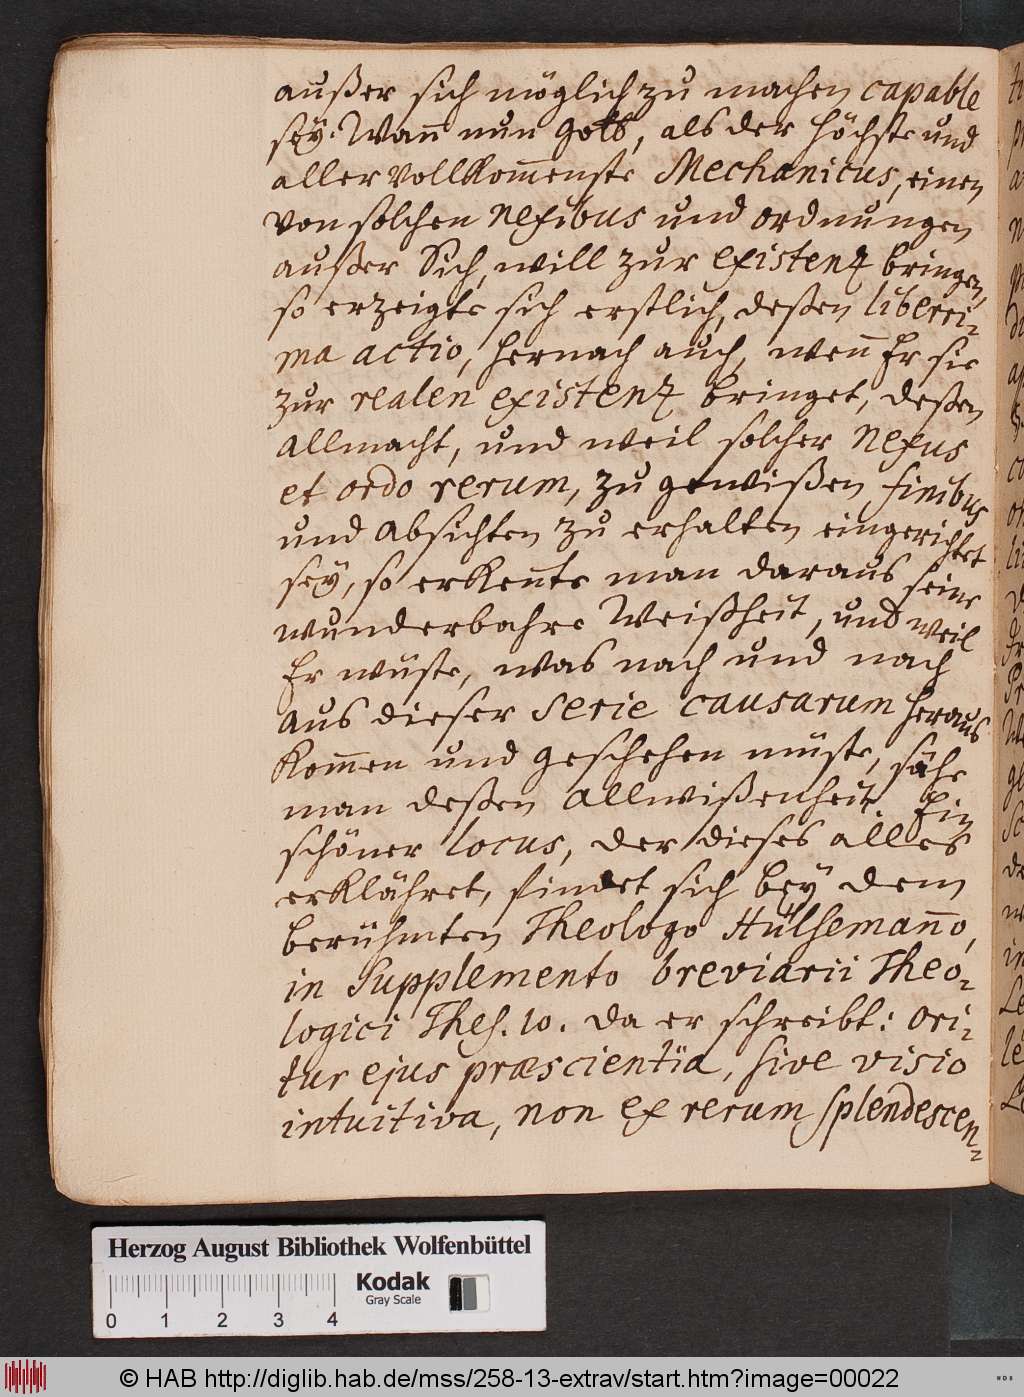 außer sich möglich zu machen capable
seÿ. Wañ nun Gott, als der höchste und
aller vollkom̄enste Mechanicus, einen
von solchen Nexibus und ordnungen
außer Sich, will zur existenz bringen,
so erzeigte sich erstlich, deßen liberri-
ma actio, hernach auch, weñ Er sie
zur realen existenz bringet, deßen
allmacht, und weil solcher Nexus
et ordo rerum, zu gewißen finibus
und absichten zu erhalten eingerichtet
seÿ, so erkeñte man daraus seine
wunderbahre Weißheit, und weil
Er wüste, was nach und nach
aus dieser Serie causarum heraus
kom̄en und geschehen müste, sähe
man deßen allwißenheit. Ein
schöner locus, der dieses alles
erklähret, findet sich beÿ dem
berühmten Theologo Hülsemañо,
in Supplemento breviarii Theo-
logici Thes. 10. da er schreibt: ori-
tur ejus præscientia, sive visio
intuitiva, non ex rerum splendescen-
Herzog August Bibliothek Wolfenbüttel
Kodak
Gray Scale
0 1 2 3 4
© HAB http://diglib.hab.de/mss/258-13-extrav/start.htm?image=00022